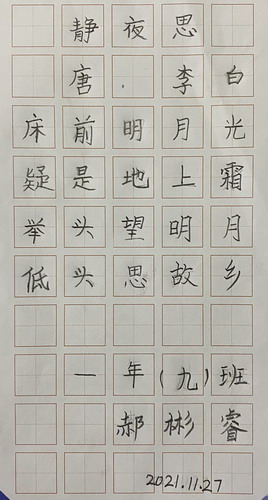 静夜思
唐·李白
床前明月光
疑是地上霜
举头望明月
低头思故乡
一年(九)班
郝彬睿
2021.11.27